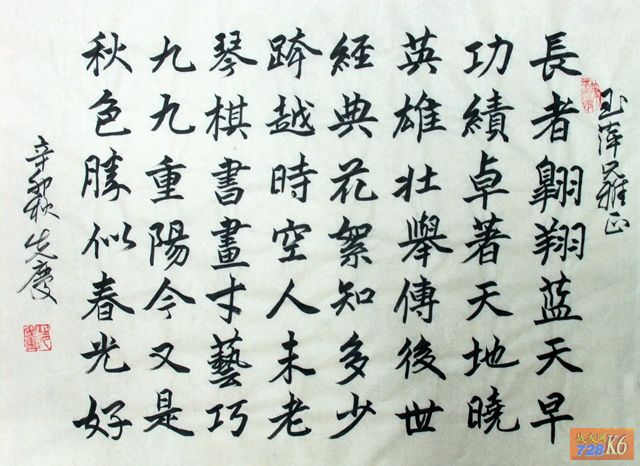 玉萍兄雅正
長者翱翔蓝天早
功績卓著天地曉
英雄壯舉傳後世
經典花絮知多少
跨越時空人未老
琴棋書畫才藝巧
九九重陽今又是
秋色勝似春光好
辛卯秋先慶
战友网
728K6